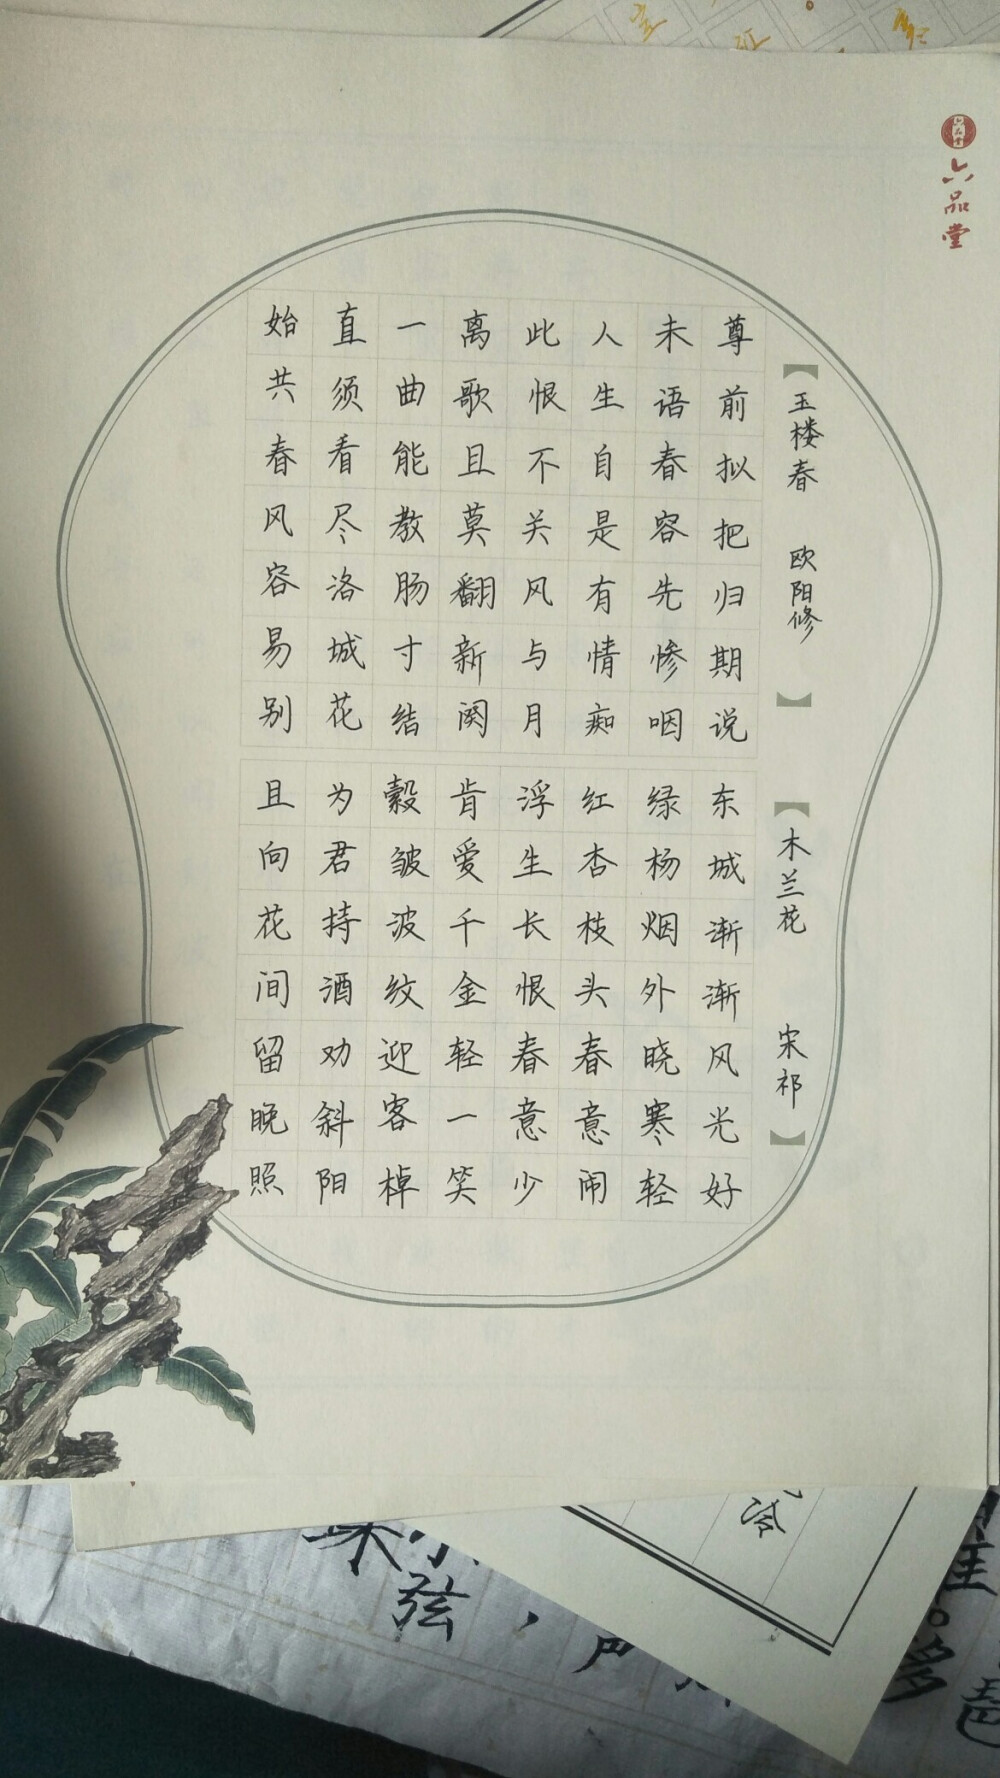 六品堂
【玉楼春 欧阳修】
尊前拟把归期说
未语春容先惨咽
人生自是有情痴
此恨不关风与月
离歌且莫翻新阕
一曲能教肠寸结
直须看尽洛城花
始共春风容易别
【木兰花 宋祁】
东城渐渐风光好
绿杨烟外晓寒轻
红杏枝头春意闹
浮生长恨春意少
肯爱千金轻一笑
縠皱波纹迎客棹
为君持酒劝斜阳
且向花间留晚照
弦，
冷